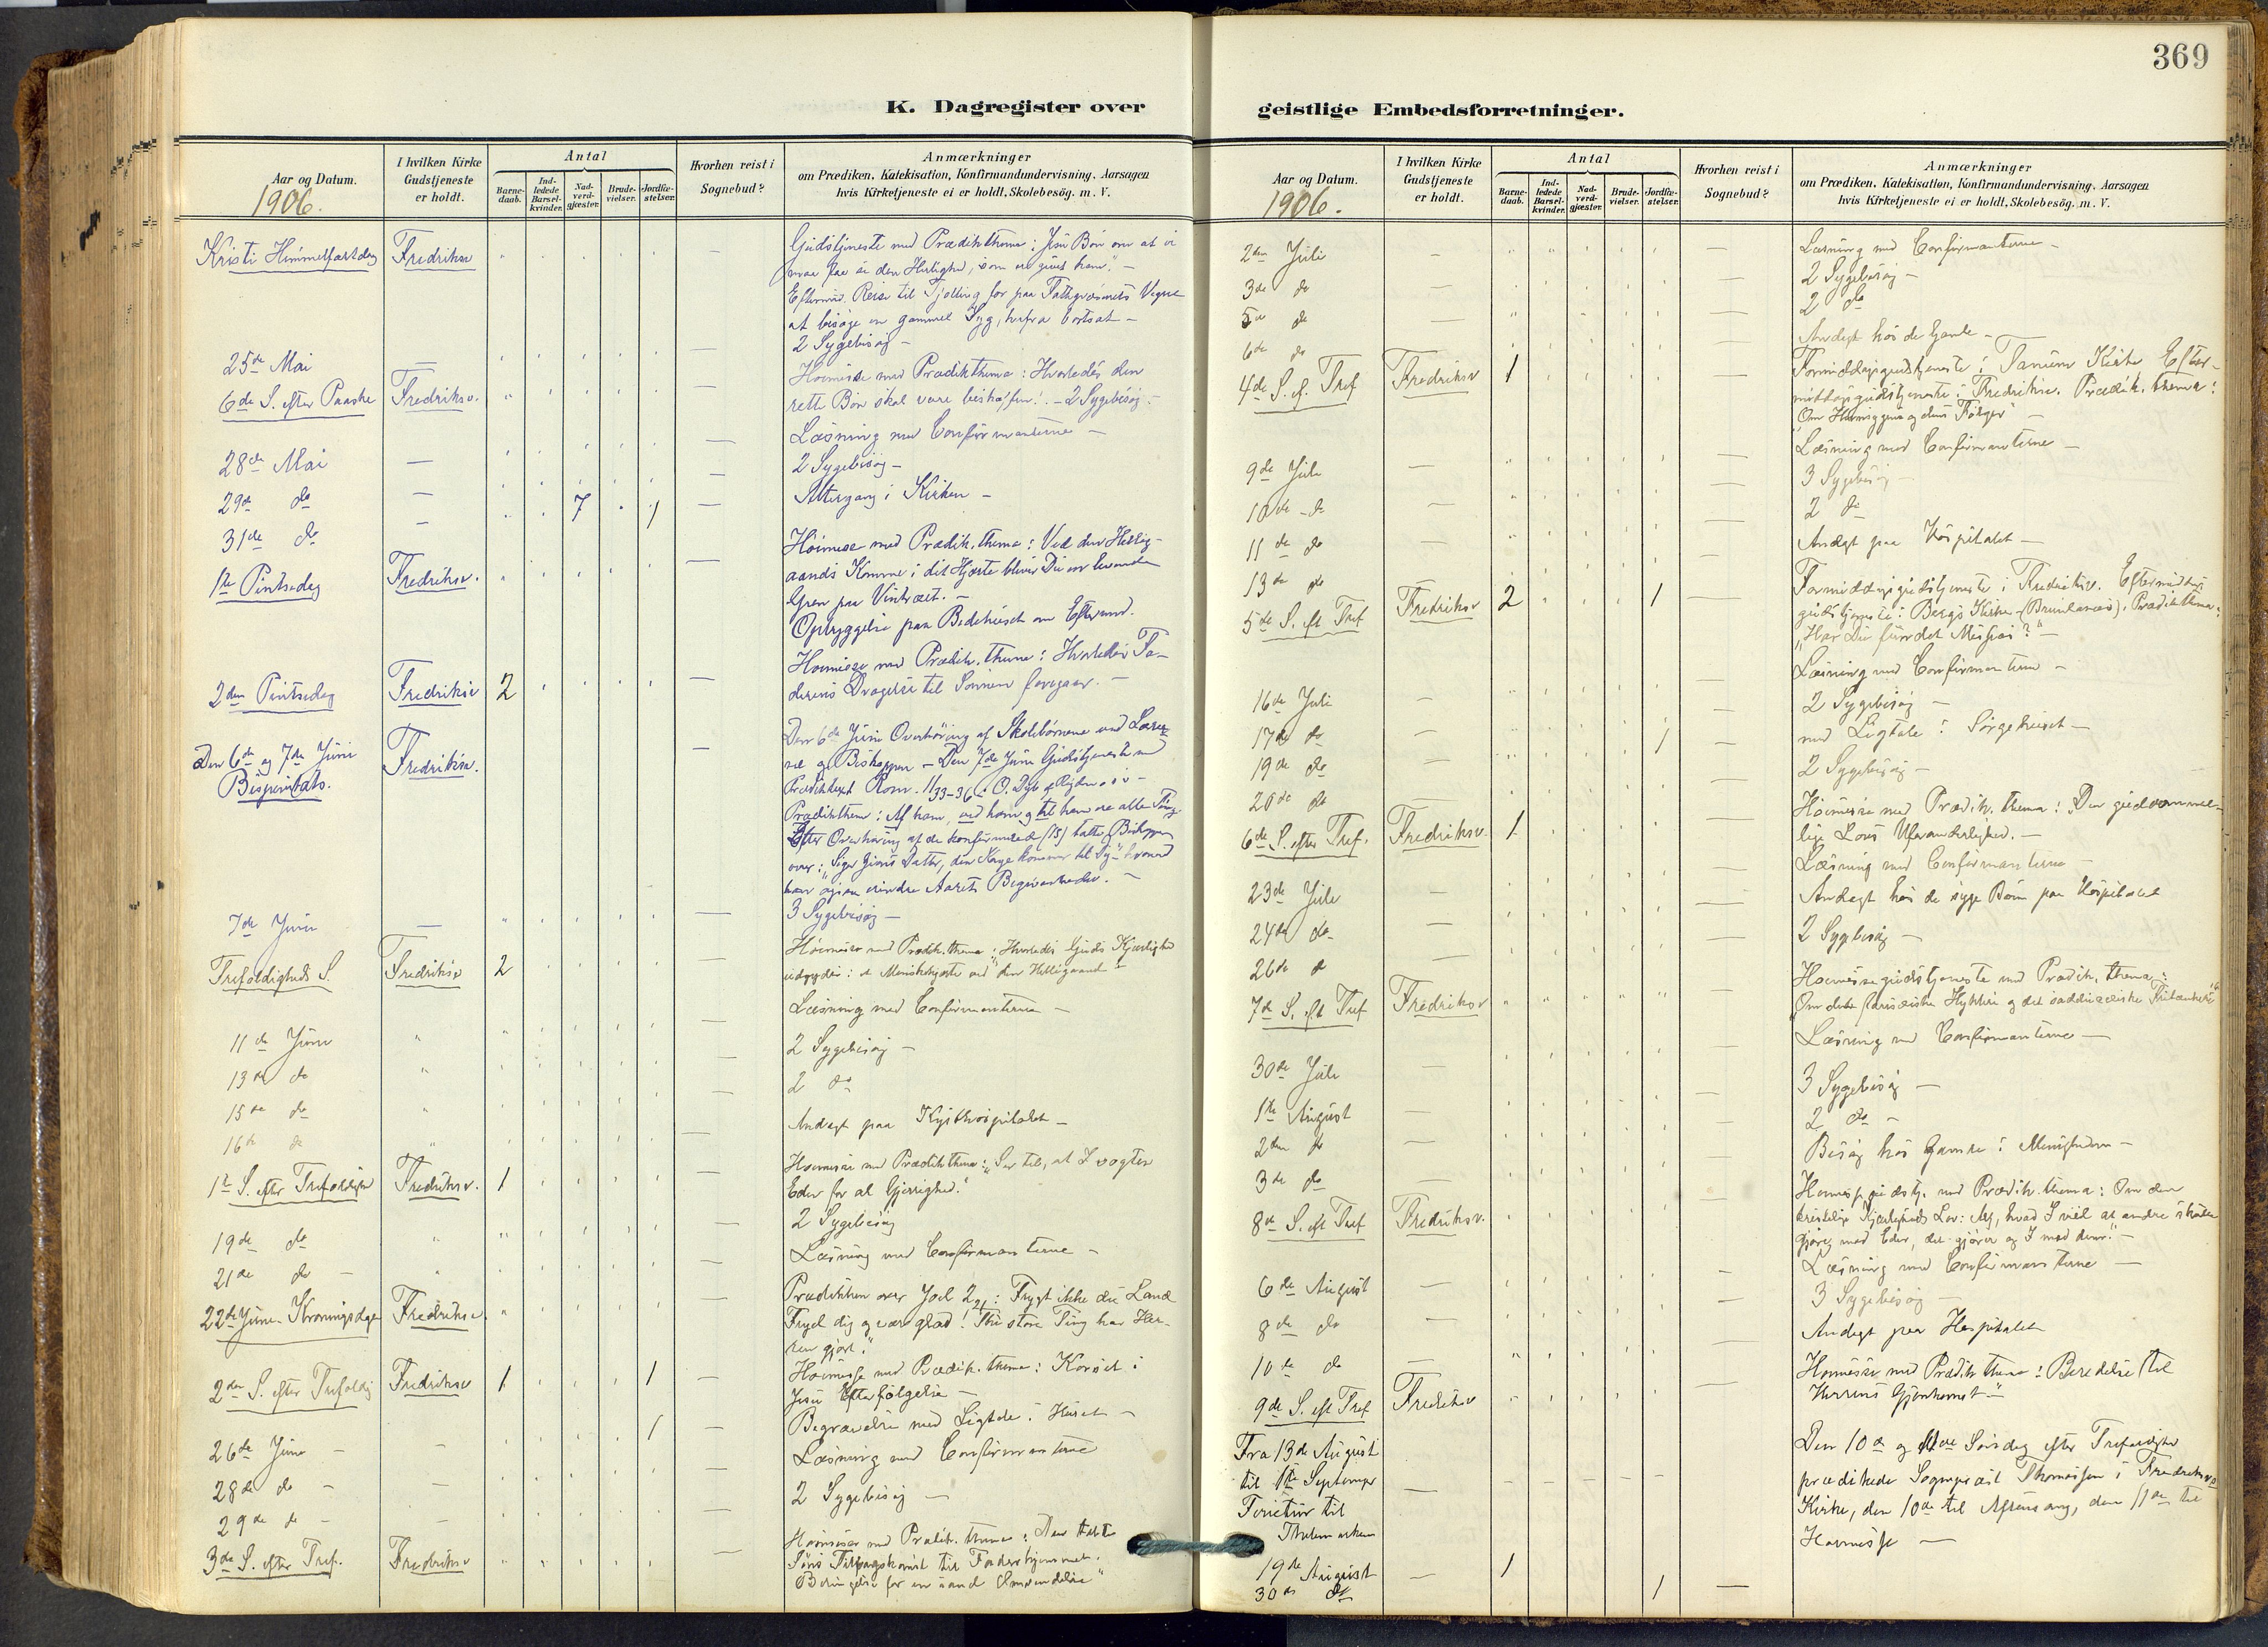 369
K. Dagregister over
Aar og Datum.
1906.
I hvilken Kirke
Gudstjeneste
er holdt.
Antal
Barne-
daab.
Ind-
ledede
Barsel-
kvinder.
Nad-
verd-
gjæster.
Brude-
vielser.
Jordfæ-
stelser.
Hvorhen reist i
Sognebud?
Anmærkninger
om Prædiken, Katekisation, Konfirmandundervisning, Aarsagen
hvis Kirketjeneste ei er holdt, Skolebesög. m. V.
Kristi Himmelfartsdag Fredriksv Gudstjeneste med Prædikthema: Jesu Bön om at vi
maa faa se den Herlighed, som er givet ham". —
Efterm. Reise til Tjölling for paa Vegne
at besöge en gammel Syg, herfra bortsat —
25de Mai — 2 Sygebesög —
6de S. efter Paaske Fredriksv. Höimesse med Prædikthema: Hvorledes den
rette Bön skal være beskaffen! — 2 Sygebesög. —
28de Mai — Læsning med Confirmanterne —
29de do — 2 Sygebesög —
31de do — 7 1 — Altergang i Kirken —
1ste Pintsedag Fredriksv. Höimesse med Prædik. thema: Ved den Hellig-
aands Komme i dit Hjerte bliver Du en levende
Gren paa Vintræet. —
Opbyggelse paa Bedehuset om Efterm.
2den Pintsedag Fredriksv 2 — Höimesse med Prædik. thema: Hvorledes Fa-
derens Dragelse til Sönnen foregaar. —
Den 6te og 7de Juni Fredriksv.
Bispevisitats.
Den 6te Juni Overhöring af Skolebörnene ved Lærer-
ne og Biskoppen — Den 7de Juni Gudstjeneste med
Prædiktext Rom. 11 33-36: O. Dyb af Rigdom o s v —
Prædikthema: Af ham, ved ham og til ham ere alle Ting
Efter Overhöring af de konfirmerede (15) talte Biskoppen
over: "Siger Zions Datter, din Konge kommer til dig" hvorved
Aarets Begivenheder. —
7de Juni — 3 Sygebesög —
Trefoldigheds S. Fredriksv 2 Höimesse med Prædik. thema: "Hvorledes Guds Kjærlighed
udgydes i et Menneskehjerte ved den Helligaand"
11te Juni Læsning med Confirmanterne —
13de do 2 Sygebesög —
15de do 2 do
16de do Andagt paa Kysthospitalet —
1ste S. efter Trefoldigh Fredriksv. 1 — Höimesse med Prædikthema: "Ser til, at I vogter
Eder for al Gjerrighed."
19de do 2 Sygebesög
21de do — Læsning med Confirmanterne —
22de Juni. Kroningsdagen Fredriksv. Prædiken over Joel 2 21: Frygt ikke du Land
Fryd dig og vær glad! Thi store Ting har Her-
ren gjort."
2den S. efter Trefoldig Fredriksv 1 1 — Höimesse med Prædik. thema: Korset i
Jesu Efterfölgelse —
26de Juni — 1 — Begravelse med Ligtale i Huset —
28de do — Læsning med Confirmanterne
29de do — 2 Sygebesög —
3die S. efter Tref. Fredriksv Höimesse med Prædik. thema: Den tabte
Söns Tilbagekomst til Faderhjemmet.
Betingelse for en sand Omvendelse"
geistlige Embedsforretninger.
Aar og Datum.
1906.
I hvilken Kirke
Gudstjeneste
er holdt.
Antal
Barne-
daab.
Ind-
ledede
Barsel-
kvinder.
Nad-
verd-
gjæster.
Brude-
vielser.
Jordfæ-
stelser.
Hvorhen reist i
Sognebud?
Anmærkninger
om Prædiken, Katekisation, Konfirmandundervisning, Aarsagen
hvis Kirketjeneste ei er holdt, Skolebesög. m. V.
2den Juli — Læsning med Confirmanterne —
3die do — 2 Sygebesög —
5te do — 2 do
6te do Andagt hos de Gamle —
4de S. ef. Tref Fredriksv 1 Formiddagsgudstjeneste i Tanum Kirke Efter-
middagsgudstjeneste i Fredriksv. Prædik. thema:
Om og dens Fölger"
9de Juli — Læsning med Confirmanterne —
10de do — 3 Sygebesög —
11te do — 2 do
13de do Andagt paa Hospitalet —
5te S. eft Tref Fredriksv 2 1 Formiddagsgudstjeneste i Fredriksv. Eftermiddags
gudstjeneste i Bergs Kirke (Brunlanæs). Prædikthema:
"Har Du fundet Messias?" —
16de Juli — Læsning med Confirmanterne —
17de do — 2 Sygebesög —
19de do — 1 — med Ligtale i Sörgehuset —
20de do — 2 Sygebesög —
6te S. efter Tref. Fredriksv. 1 Höimesse med Prædik. thema: Den guddomme-
lige Lovs Uforanderlighed. —
23de Juli — Læsning med Confirmanterne —
24de do — Andagt hos de syge Börn paa Hospitalet
26de do — 2 Sygebesög —
7de S. eft Tref Fredriksv Höimessegudstjeneste med Prædik. thema:
Om det farisæiske Hykleri og det sadducæiske Fritænkeri"
30de Juli — Læsning med Confirmanterne —
1ste August — 3 Sygebesög —
2den do — 2 do —
3die do — Besög hos Gamle i Menigheden —
8de S. eft Tref Fredriksv. Höimessegudstj. med Prædik. thema: Om den
kristelige Kjærligheds Lov: Alt, hvad I vil at andre skulle
gjöre mod Eder, det gjörer og I mod dem." —
6te August — Læsning med Confirmanterne —
8de do — 3 Sygebesög —
10de do — Andagt paa Hospitalet
9de S. eft Tref Fredriksv Höimesse med Prædik thema: Beredelse til
Herrens Gjenkomst" —
Fra 13de August
til 1ste September
Ferietur til
Thelemarken
Den 10de og 11te Söndag efter Trefoldighed
prædikede Sogneprest Thomassen i Fredriksv
Kirke, den 10de til Aftensang, den 11te til
Höimesse —
19de August — 1
30de do 1 —